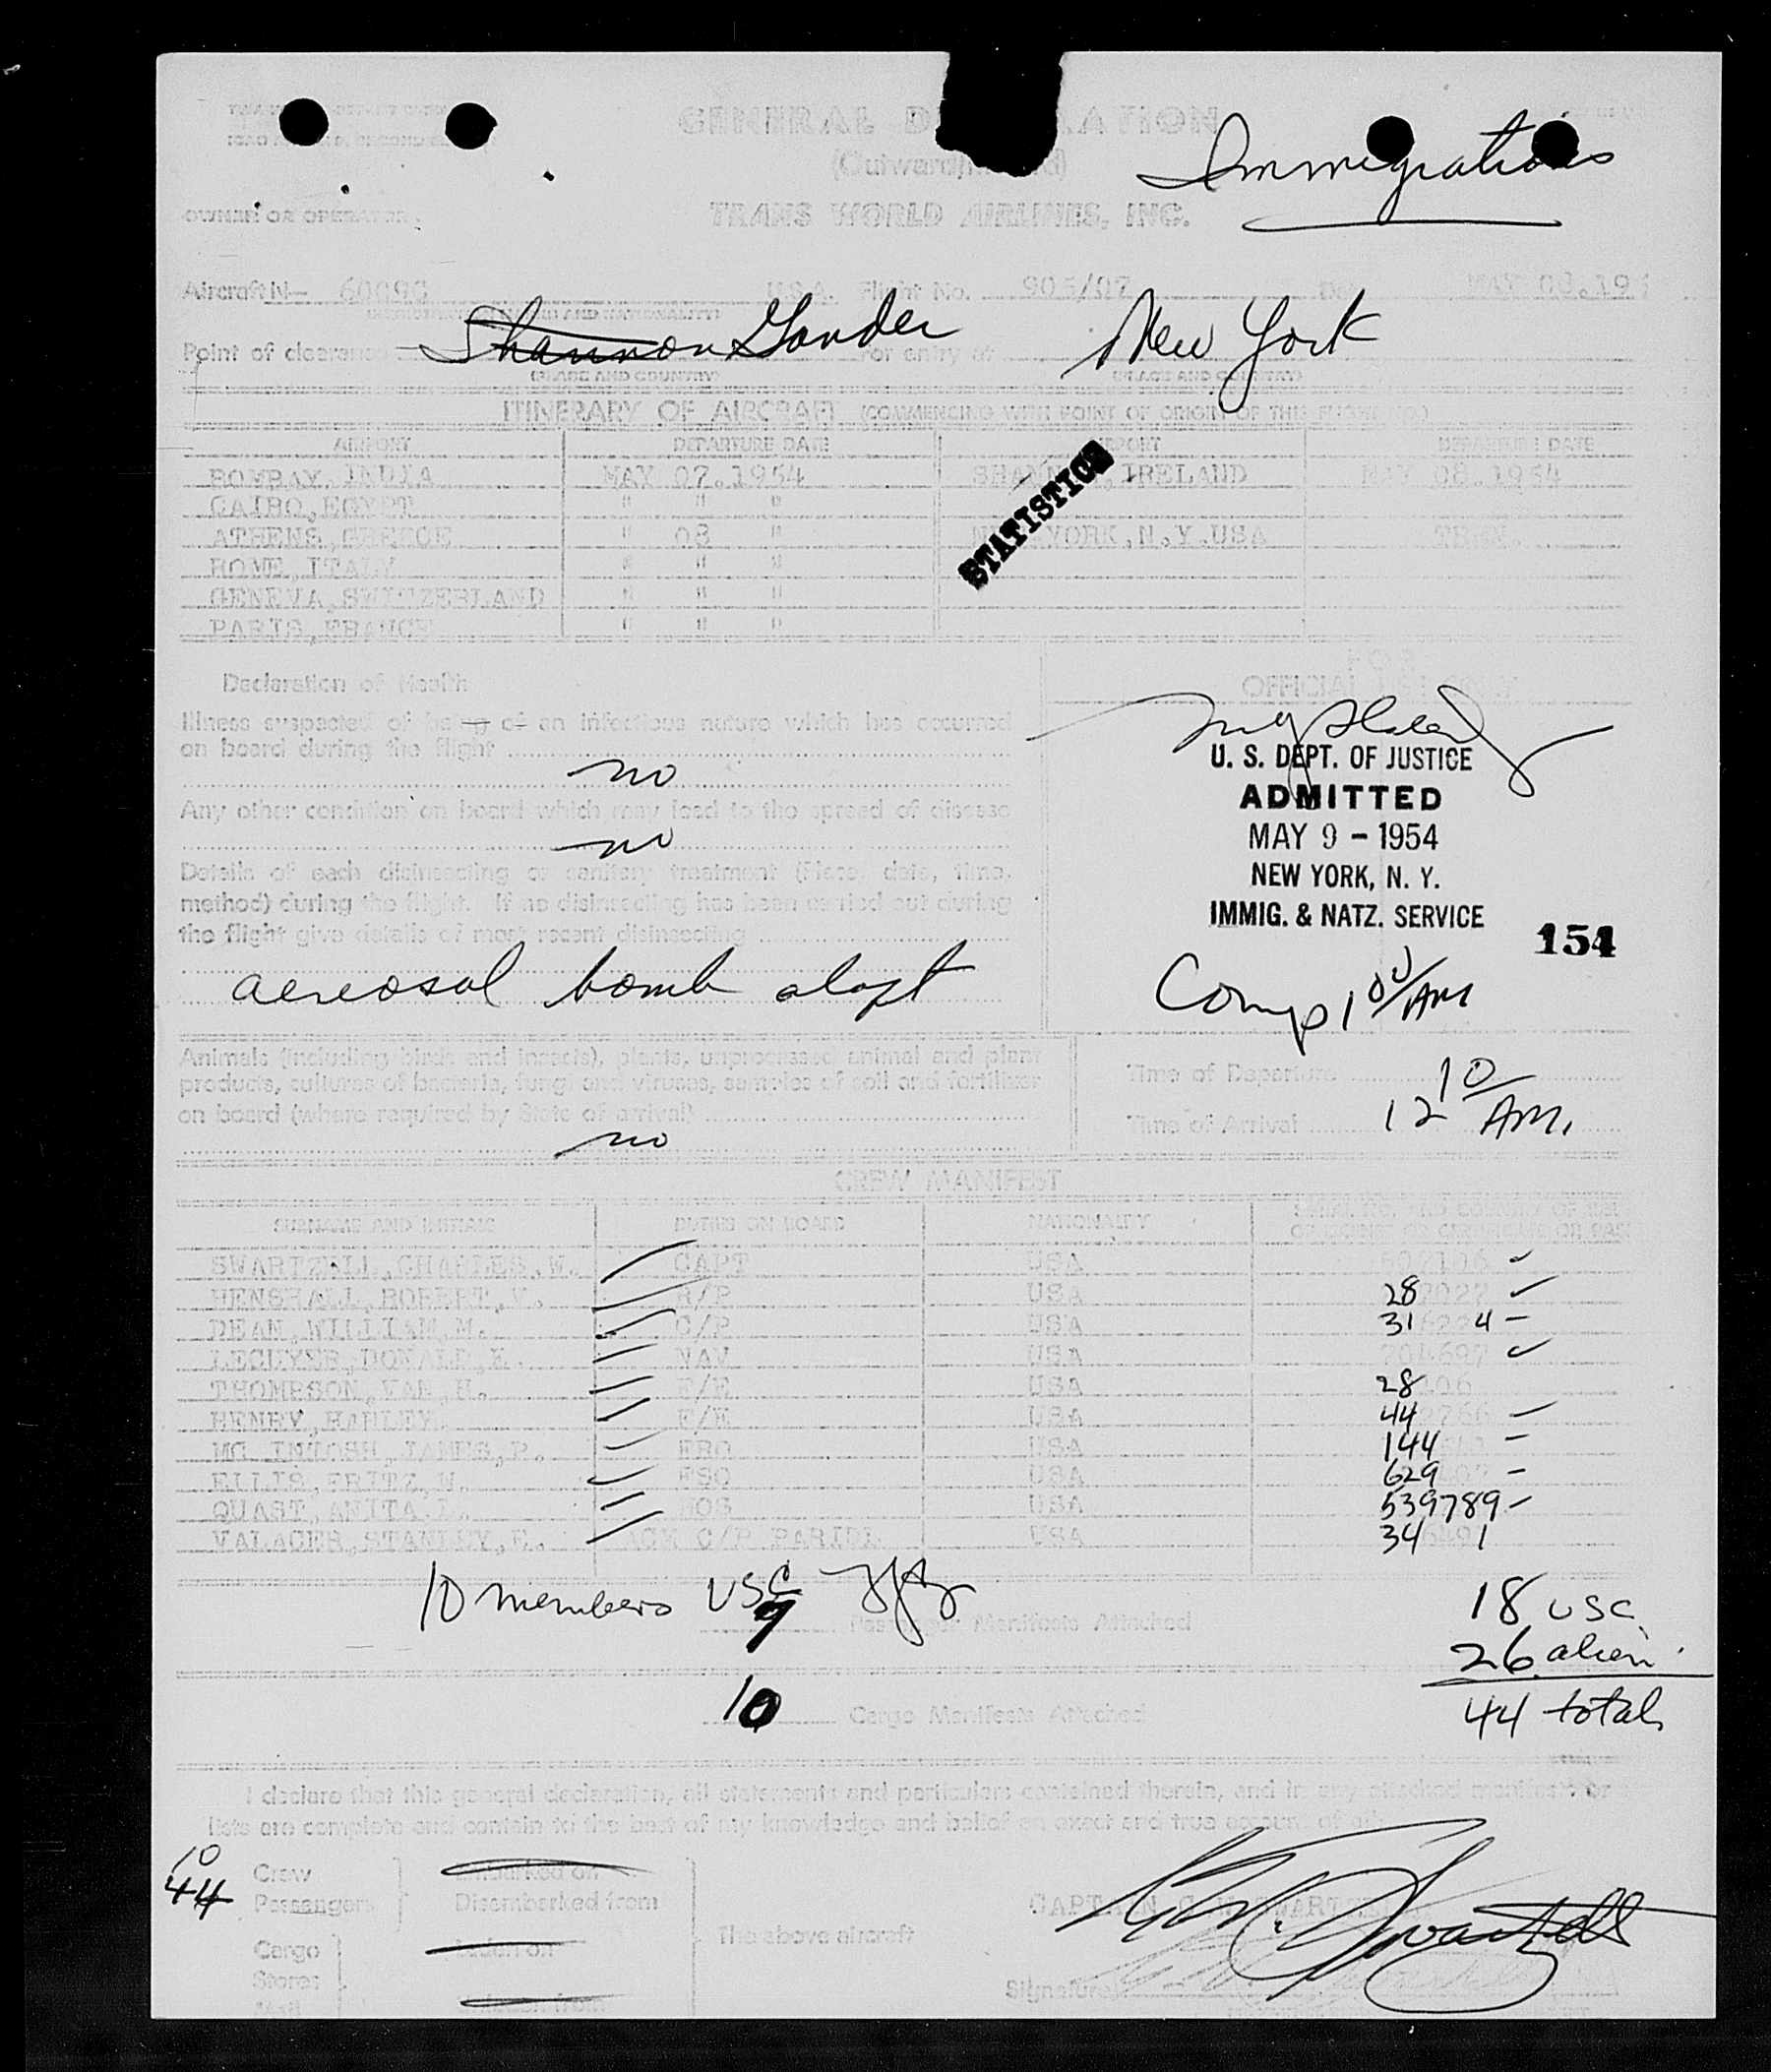 GENERAL
TRANS WORLD AIRLINES, INC.
OWNER OR OPERATOR
Immigration
Aircraft N- U.S.A. Flight No. 905/07
Point of clearance Shannon Gander For entry at New York
(PLACE AND COUNTRY) (PLACE AND COUNTRY)
ITINERARY OF AIRCRAFT (COMMENCING WITH POINT OF ORIGIN OF THIS FLIGHT)
AIRPORT DEPARTURE DATE AIRPORT DEPARTURE DATE
BOMBAY, INDIA MAY 07.1954 SHANNON, IRELAND MAY 08.1954
CAIRO, EGYPT " " "
ATHENS, GREECE " 08 " NEW YORK, N.Y. USA TERM.
ROME, ITALY " " "
GENEVA, SWITZERLAND " " "
PARIS, FRANCE " " "
STATISTICS
Declaration of Health
FOR
OFFICIAL USE ONLY
Illness suspected of being of an infectious nature which has occurred
on board during the flight
no
Any other condition on board which may lead to the spread of disease
no
Details of each disinsecting or sanitary treatment (Place, date, time,
method) during the flight. If no disinsecting has been carried out during
the flight give details of most recent disinsecting
aereosol bomb aloft
U. S. DEPT. OF JUSTICE
ADMITTED
MAY 9 - 1954
NEW YORK, N. Y.
IMMIG. & NATZ. SERVICE
154
Comp 1 00/AM
Animals (including birds and insects), plants, unprocessed animal and plant
products, cultures of bacteria, fungi and viruses, samples of soil and fertilizer
on board (where required by State of arrival)
no
Time of Departure
Time of Arrival 12 10 AM.
CREW MANIFEST
SURNAME AND INITIALS DUTIES ON BOARD NATIONALITY
SWARTZELL, CHARLES, W. CAPT USA
HENSHALL, ROBERT, V. USA 28
DEAN, WILLIAM, M. USA 31 4
LECUYER, DONALD, E. NAV USA
THOMPSON, VAN, H. F/E USA 28
HENRY, HARLEY F/E USA 44
MC INTOSH, JAMES, P. USA 144
ELLIS, FRITZ, W. FSO USA 629
QUAST, ANITA HOS USA 539789
VALAGER, STANLEY, E. USA 34 1
10 members USC
9 Passenger Manifests Attached
18 USC
26 alien
44 total
10 Cargo Manifests Attached
I declare that this general declaration, all statements and particulars contained therein, and in any attached manifests or
lists are complete and contain to the best of my knowledge and belief an exact and true account of
10 Crew Embarked on
44 Passengers Disembarked from
The above aircraft
CAPTAIN C.W. SWARTZELL
C.W. Swartzell
Cargo Laden on
Stores
Mail
Signature